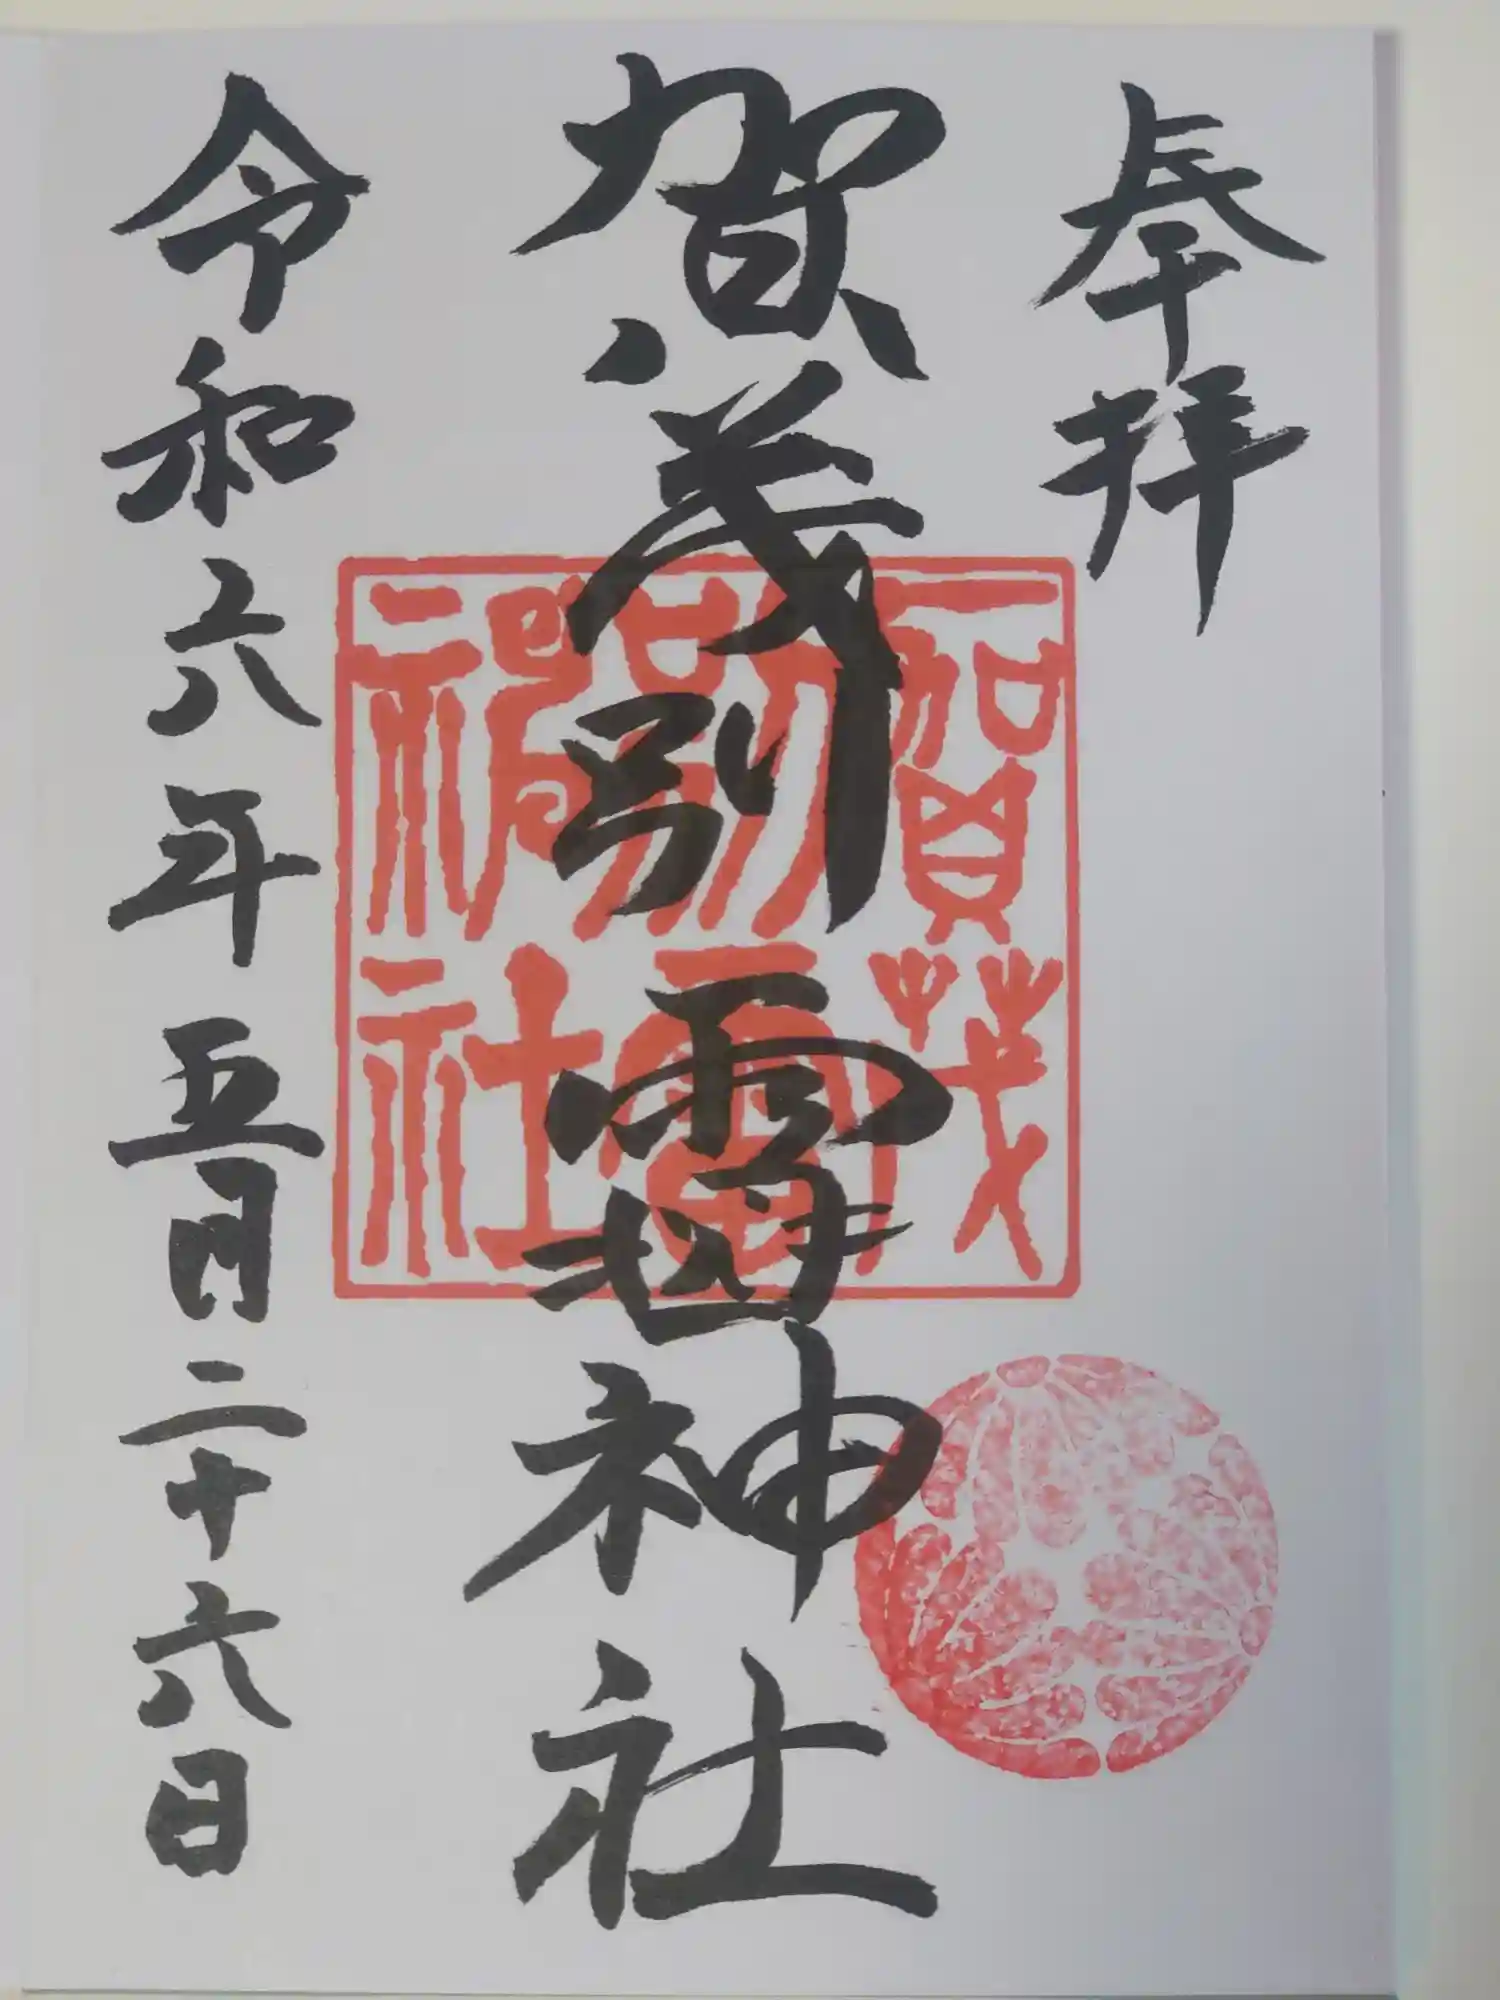 奉拝
賀茂別雷神社
賀茂別雷神社
令和六年五月二十六日